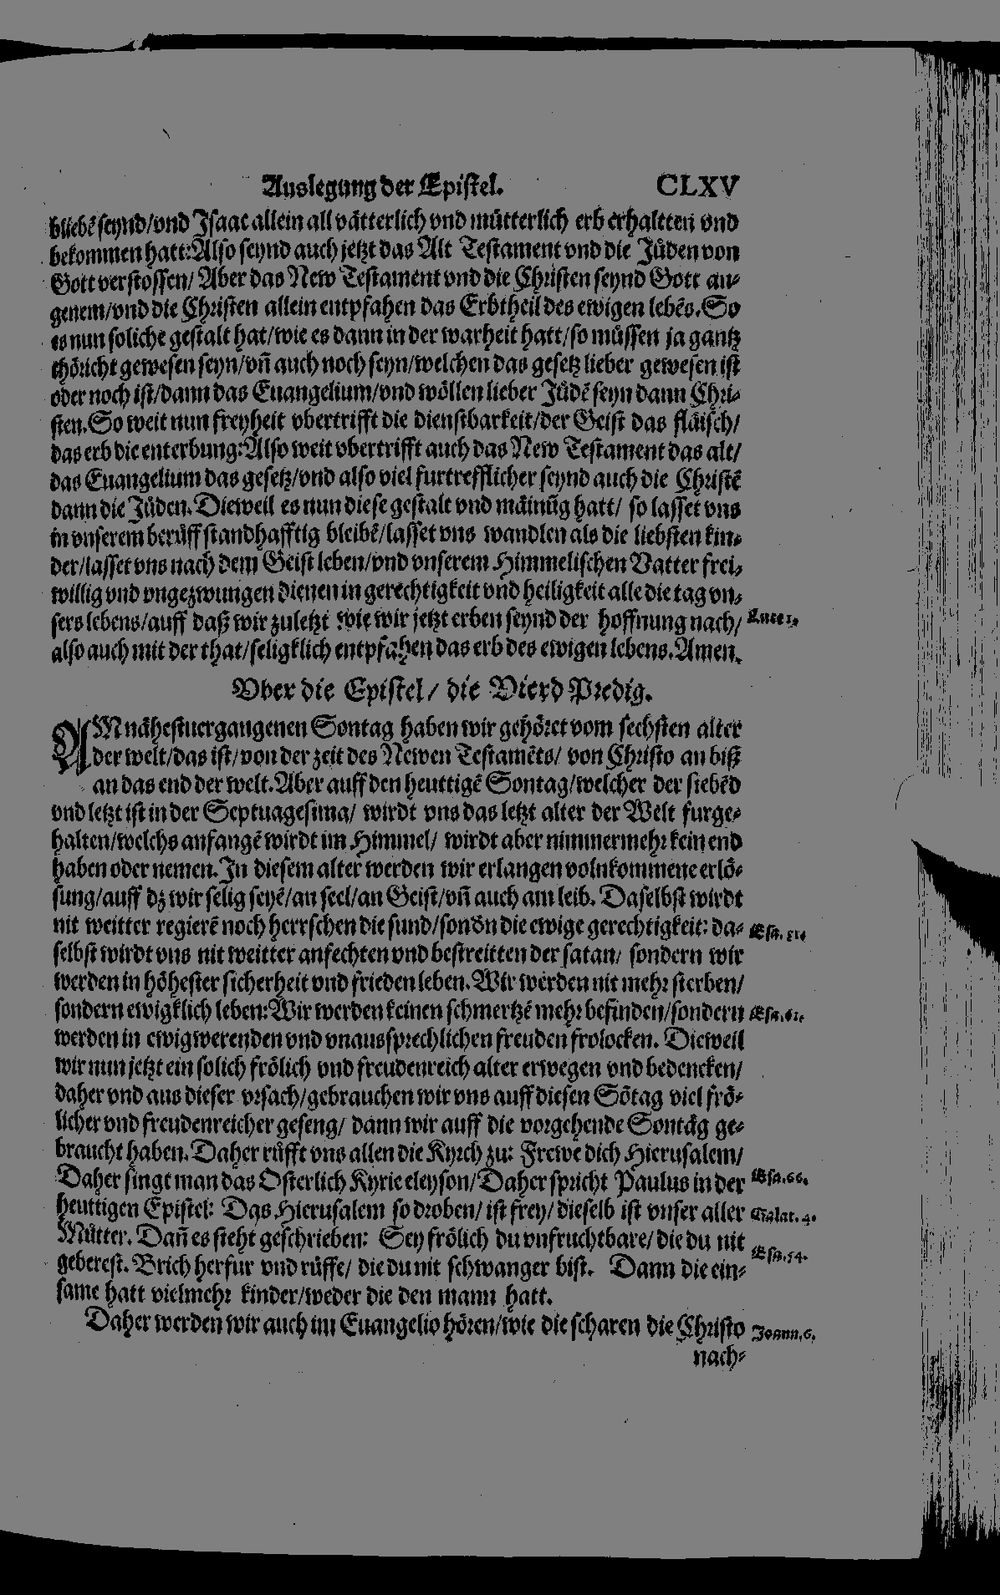 Auslegung der Epistel. CLXV
bliebẽ seynd/vnd Isaac allein all vätterlich vnd mütterlich erb erhaltten vnd
bekommen hatt: Also seynd auch jetzt das Alt Testament vnd die Jüden von
Gott verstossen/ Aber das New Testament vnd die Christen seynd Gott an-
genem/vnd die Christen allein entpfahen das Erbtheil des ewigen lebẽs. So
es nun soliche gestalt hat/wie es dann in der warheit hatt/so müssen ja gantz
thöricht gewesen seyn/vñ auch noch seyn/welchen das gesetz lieber gewesen ist
oder noch ist/dann das Euangelium/vnd wöllen lieber Jüdẽ seyn dann Chri-
sten. So weit nun freyheit vbertrifft die dienstbarkeit/der Geist das fläisch/
das erb die enterbung: Also weit vbertrifft auch das New Testament das alt/
das Euangelium das gesetz/vnd also viel furtrefflicher seynd auch die Christẽ
dann die Jüden. Dieweil es nun diese gestalt vnd mäinũg hatt/ so lasset vns
in vnserem berüff standhafftig bleibẽ/lasset vns wandlen als die liebsten kin-
der/lasset vns nach dem Geist leben/vnd vnserem Himmelischen Vatter frei-
willig vnd vngezwungen dienen in gerechtigkeit vnd heiligkeit alle die tag vn-
sers lebens/auff daß wir zuletzt wie wir jetzt erben seynd der hoffnung nach/ Luce 1.
also auch mit der that/seligklich entpfahen das erb des ewigen lebens. Amen.
Vber die Epistel/ die Vierd Predig.
AM nähestuergangenen Sontag haben wir gehöret vom sechsten alter
der welt/das ist/von der zeit des Newen Testamẽts/ von Christo an biß
an das end der welt. Aber auff den heuttigẽ Sontag/welcher der siebẽd
vnd letzt ist in der Septuagesima/ wirdt vns das letzt alter der Welt furge-
halten/welchs anfangẽ wirdt im Himmel/ wirdt aber nimmermehr kein end
haben oder nemen. In diesem alter werden wir erlangen volnkommene erlö-
sung/auff dz wir selig seyẽ/an seel/an Geist/vñ auch am leib. Daselbst wirdt
nit weitter regierẽ noch herrschen die sund/sondn die ewige gerechtigkeit: da- Esa. 51.
selbst wirdt vns nit weitter anfechten vnd bestreitten der satan/ sondern wir
werden in höhester sicherheit vnd frieden leben. Wir werden nit mehr sterben/
sondern ewigklich leben: Wir werden keinen schmertzẽ mehr befinden/sondern Esa. 61.
werden in ewigwerenden vnd vnaussprechlichen freuden frolocken. Dieweil
wir nun jetzt ein solich frölich vnd freudenreich alter erwegen vnd bedencken/
daher vnd aus dieser vrsach/gebrauchen wir vns auff diesen Sõtag viel frö-
licher vnd freudenreicher geseng/ dann wir auff die vorgehende Sontäg ge-
braucht haben. Daher rüfft vns allen die Kyrch zu: Frewe dich Hierusalem/
Daher singt man das Osterlich Kyrie eleyson/Daher spricht Paulus in der Esa. 66.
heuttigen Epistel: Das Hierusalem so droben/ ist frey/ dieselb ist vnser aller Galat. 4.
Mütter. Dañ es steht geschrieben: Sey frölich du vnfruchtbare/ die du nit
geberest. Brich herfur vnd rüffe/ die du nit schwanger bist. Dann die ein- Esa. 54.
same hatt vielmehr kinder/weder die den mann hatt.
Daher werden wir auch im Euangelio hören/wie die scharen die Christo Joann. 6.
nach-